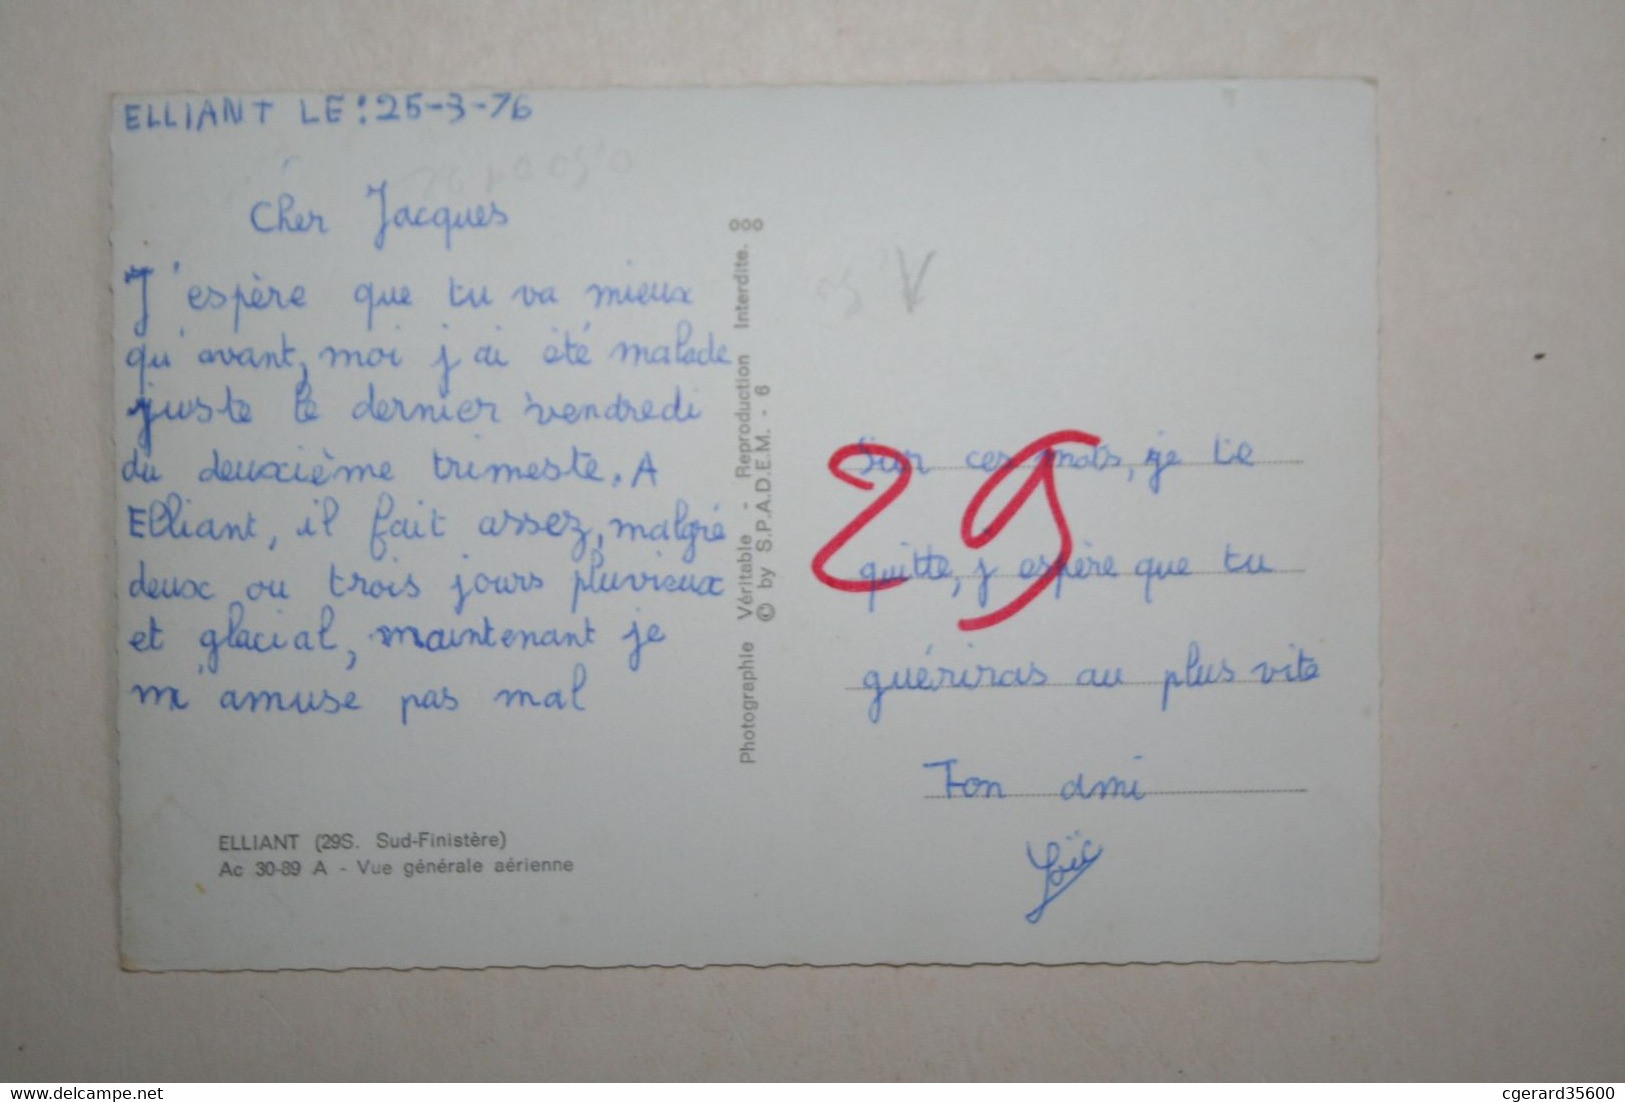 ELLIANT LE : 25-3-76
Cher Jacques
J'espère que tu va mieux
qu'avant, moi j'ai été malade
juste le dernier vendredi
du deuxième trimeste. A
Elliant, il fait assez, malgré
deux ou trois jours pluvieux
et glacial, maintenant je
m'amuse pas mal
ELLIANT (29S. Sud-Finistère)
Ac 30-89 A - Vue générale aérienne
Photographie Véritable - Reproduction Interdite.
© by S.P.A.D.E.M. - 6
29
Sur ces mots, je te
quitte, j'espère que tu
guériras au plus vite
Ton ami
Loïc
delcampe.net
cgerard35600